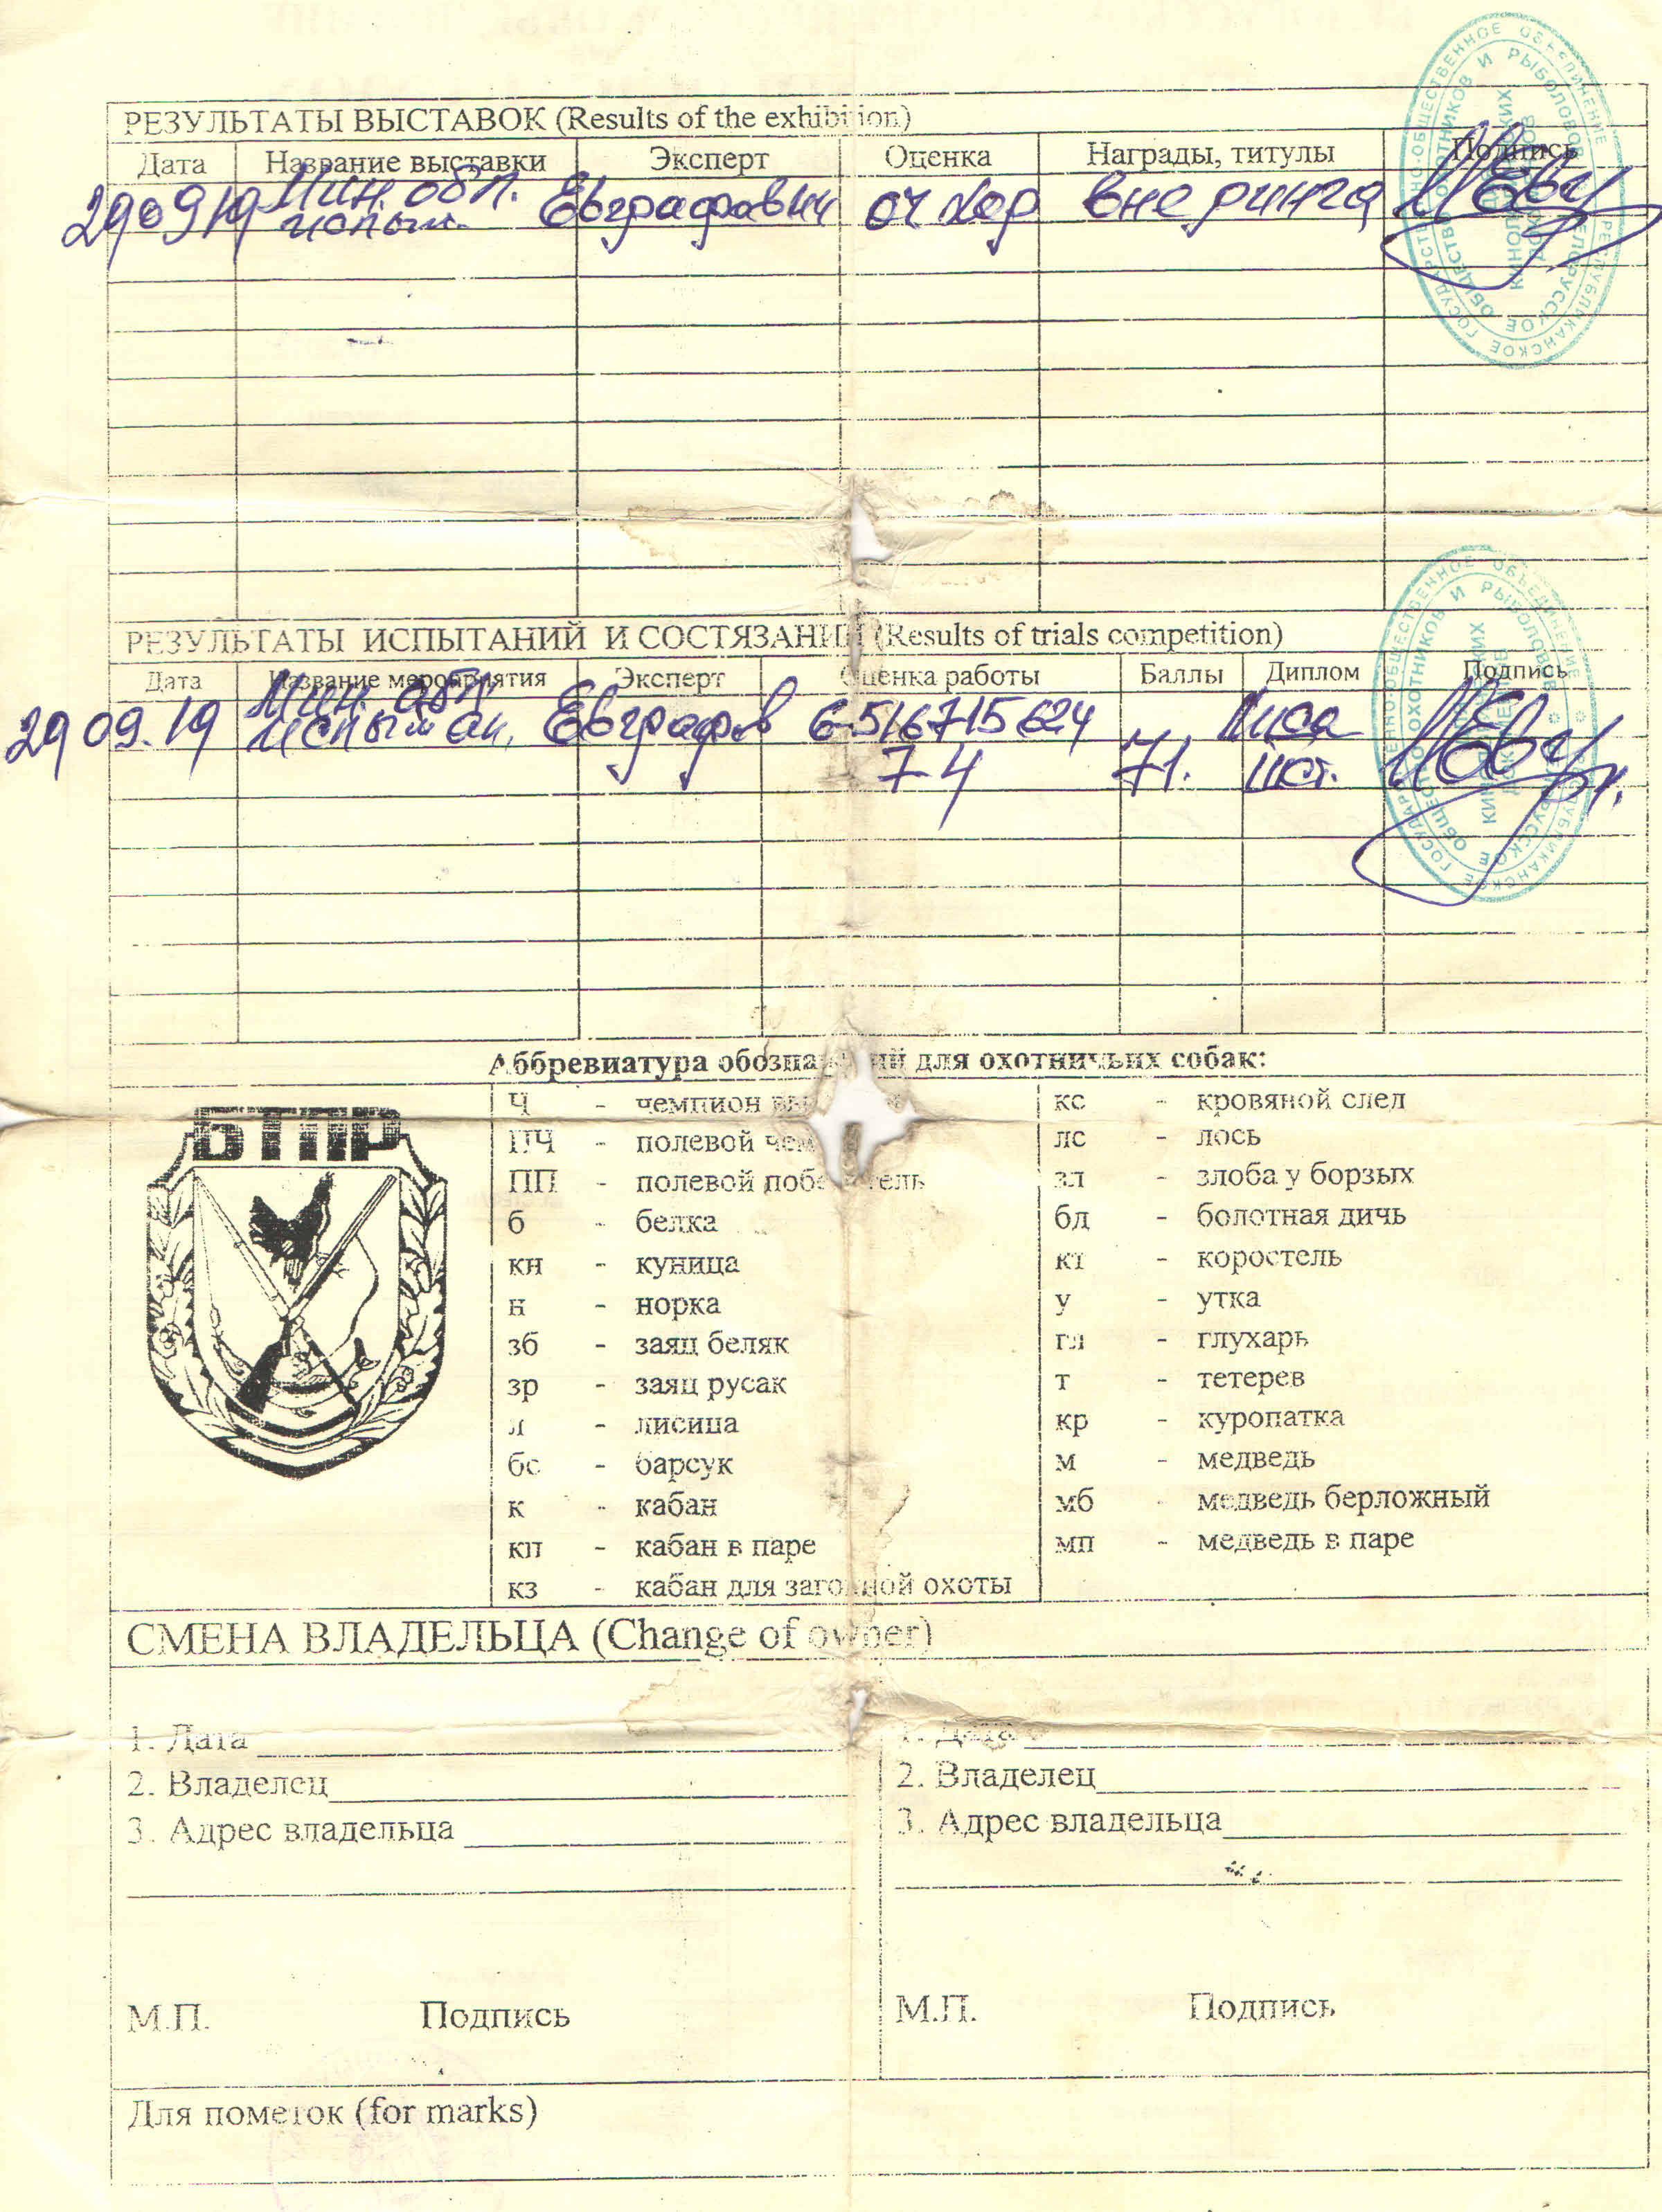 РЕЗУЛЬТАТЫ ВЫСТАВОК (Results of the exhibition)
Дата Название выставки Эксперт Оценка Награды, титулы Подпись
290919 Мин. обл. Евграфович оч хор вне ринга
испыт.
РЕЗУЛЬТАТЫ ИСПЫТАНИЙ И СОСТЯЗАНИЙ (Results of trials competition)
Дата Название мероприятия Эксперт Оценка работы Баллы Диплом Подпись
29 09.19 Мин. обл. Евграфов Лиса
испытан. 74 71. IIIст.
Аббревиатура обозначений для охотничьих собак:
Ч - чемпион
ПЧ - полевой чем
ПП - полевой победитель
б - белка
кн - куница
н - норка
зб - заяц беляк
зр - заяц русак
л - лисица
бс - барсук
к - кабан
кп - кабан в паре
кз - кабан для загонной охоты
кс - кровяной след
лс - лось
зл - злоба у борзых
бд - болотная дичь
кт - коростель
у - утка
гл - глухарь
т - тетерев
кр - куропатка
м - медведь
мб - медведь берложный
мп - медведь в паре
БТПР
СМЕНА ВЛАДЕЛЬЦА (Change of owner)
1. Дата
2. Владелец
3. Адрес владельца
М.П. Подпись
1. Дата
2. Владелец
3. Адрес владельца
М.П. Подпись
Для пометок (for marks)
РЕСПУБЛИКАНСКОЕ ГОСУДАРСТВЕННО-ОБЩЕСТВЕННОЕ ОБЪЕДИНЕНИЕ
БЕЛОРУССКОЕ ОБЩЕСТВО ОХОТНИКОВ И РЫБОЛОВОВ
РЕСПУБЛИКАНСКОЕ ГОСУДАРСТВЕННО-ОБЩЕСТВЕННОЕ ОБЪЕДИНЕНИЕ
БЕЛОРУССКОЕ ОБЩЕСТВО ОХОТНИКОВ И РЫБОЛОВОВ